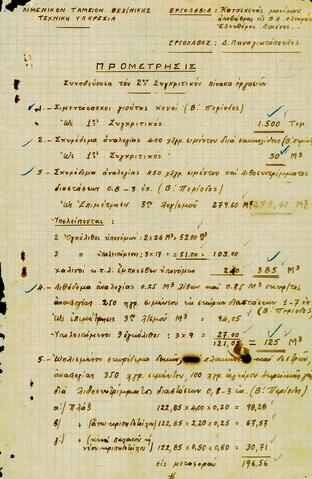 ΛΙΜΕΝΙΚΟΝ ΤΑΜΕΙΟΝ ΘΕΣ/ΝΙΚΗΣ
ΤΕΧΝΙΚΗ ΥΠΗΡΕΣΙΑ
ΕΡΓΟΛΑΒΙΑ: Κατασκευής μονίμου
αποβάθρας εις Β.Α. πλευράν
Ελευθέρου Λιμένος.
ΕΡΓΟΛΑΒΟΣ: Δ. Παναγιωτόπουλος
ΠΡΟΜΕΤΡΗΣΙΣ
Συνοδεύουσα τον 2ον Συγκριτικόν πίνακα εργασιών
1.- Σιμεντόσακκοι γιούτης κενοί (Β: Περίοδος)
Ως 1ος Συγκριτικός 1.500 Τεμ.
2.- Σκυρόδεμα αναλογίας 400 χλγρ. σιμέντου διά
Ως 1ος Συγκριτικός 30 Μ3
3.- Σκυρόδεμα αναλογίας 450 χλγρ. σιμέντου και λιθοσυντρίμματος
διαστάσεων 0.8-3 εκ. (Β: Περίοδος)
Ως Επιμέτρησις 3ου λ/σμού 279.60 Μ3 279,60 Μ3
Υπολείπονται:
2 Ογκόλιθοι υπονόμων: 2×26 Μ3= 52.00 Μ3
3 υπονόμου: 3×17 = 51.00 = 103.00
κ.τ.λ. έμπροσθεν υπονόμων 2.40 385 Μ3
4.- Λιθόδεμα αναλογίας 0.25 Μ3 λίθων και 0.85 Μ3 σκυρ/τος
αναλογίας 250 χλγρ. σιμέντου εκ σκύρων διαστάσεων 1-7 εκ.
(Β: Περίοδος)
Ως επιμέτρησις 3ου λ/σμού Μ3 = 94,05
Υπολείπονται 3 ογκόλιθοι: 3×9 = 27.00
121,05 ≃ 125 Μ3
5.- και
αναλογίας 350 χλγρ. σιμέντου, 100 χλγρ.
διά λιθοσυντρίμματος διαστάσεων 0,8-3 εκ. (Β: Περίοδος)
α:/ Πλάξ 122,85×4,00×0,20 = 98,28
β:/ 122,85×2,20×0,25 = 67,57
γ:/ 122,85×0,50×0,50 = 30,71
εις μεταφοράν 196,56